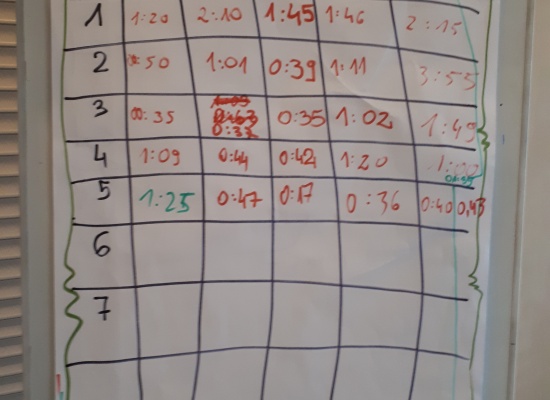 1 1:20 2:10 1:45 1:46 2:15
2 :50 1:01 0:39 1:11 3:55
3 :35 0:35 1:02 1:49
4 1:09 0:44 0:42 1:20
5 1:25 0:47 0:17 0:36 0:40 0,43
6
7